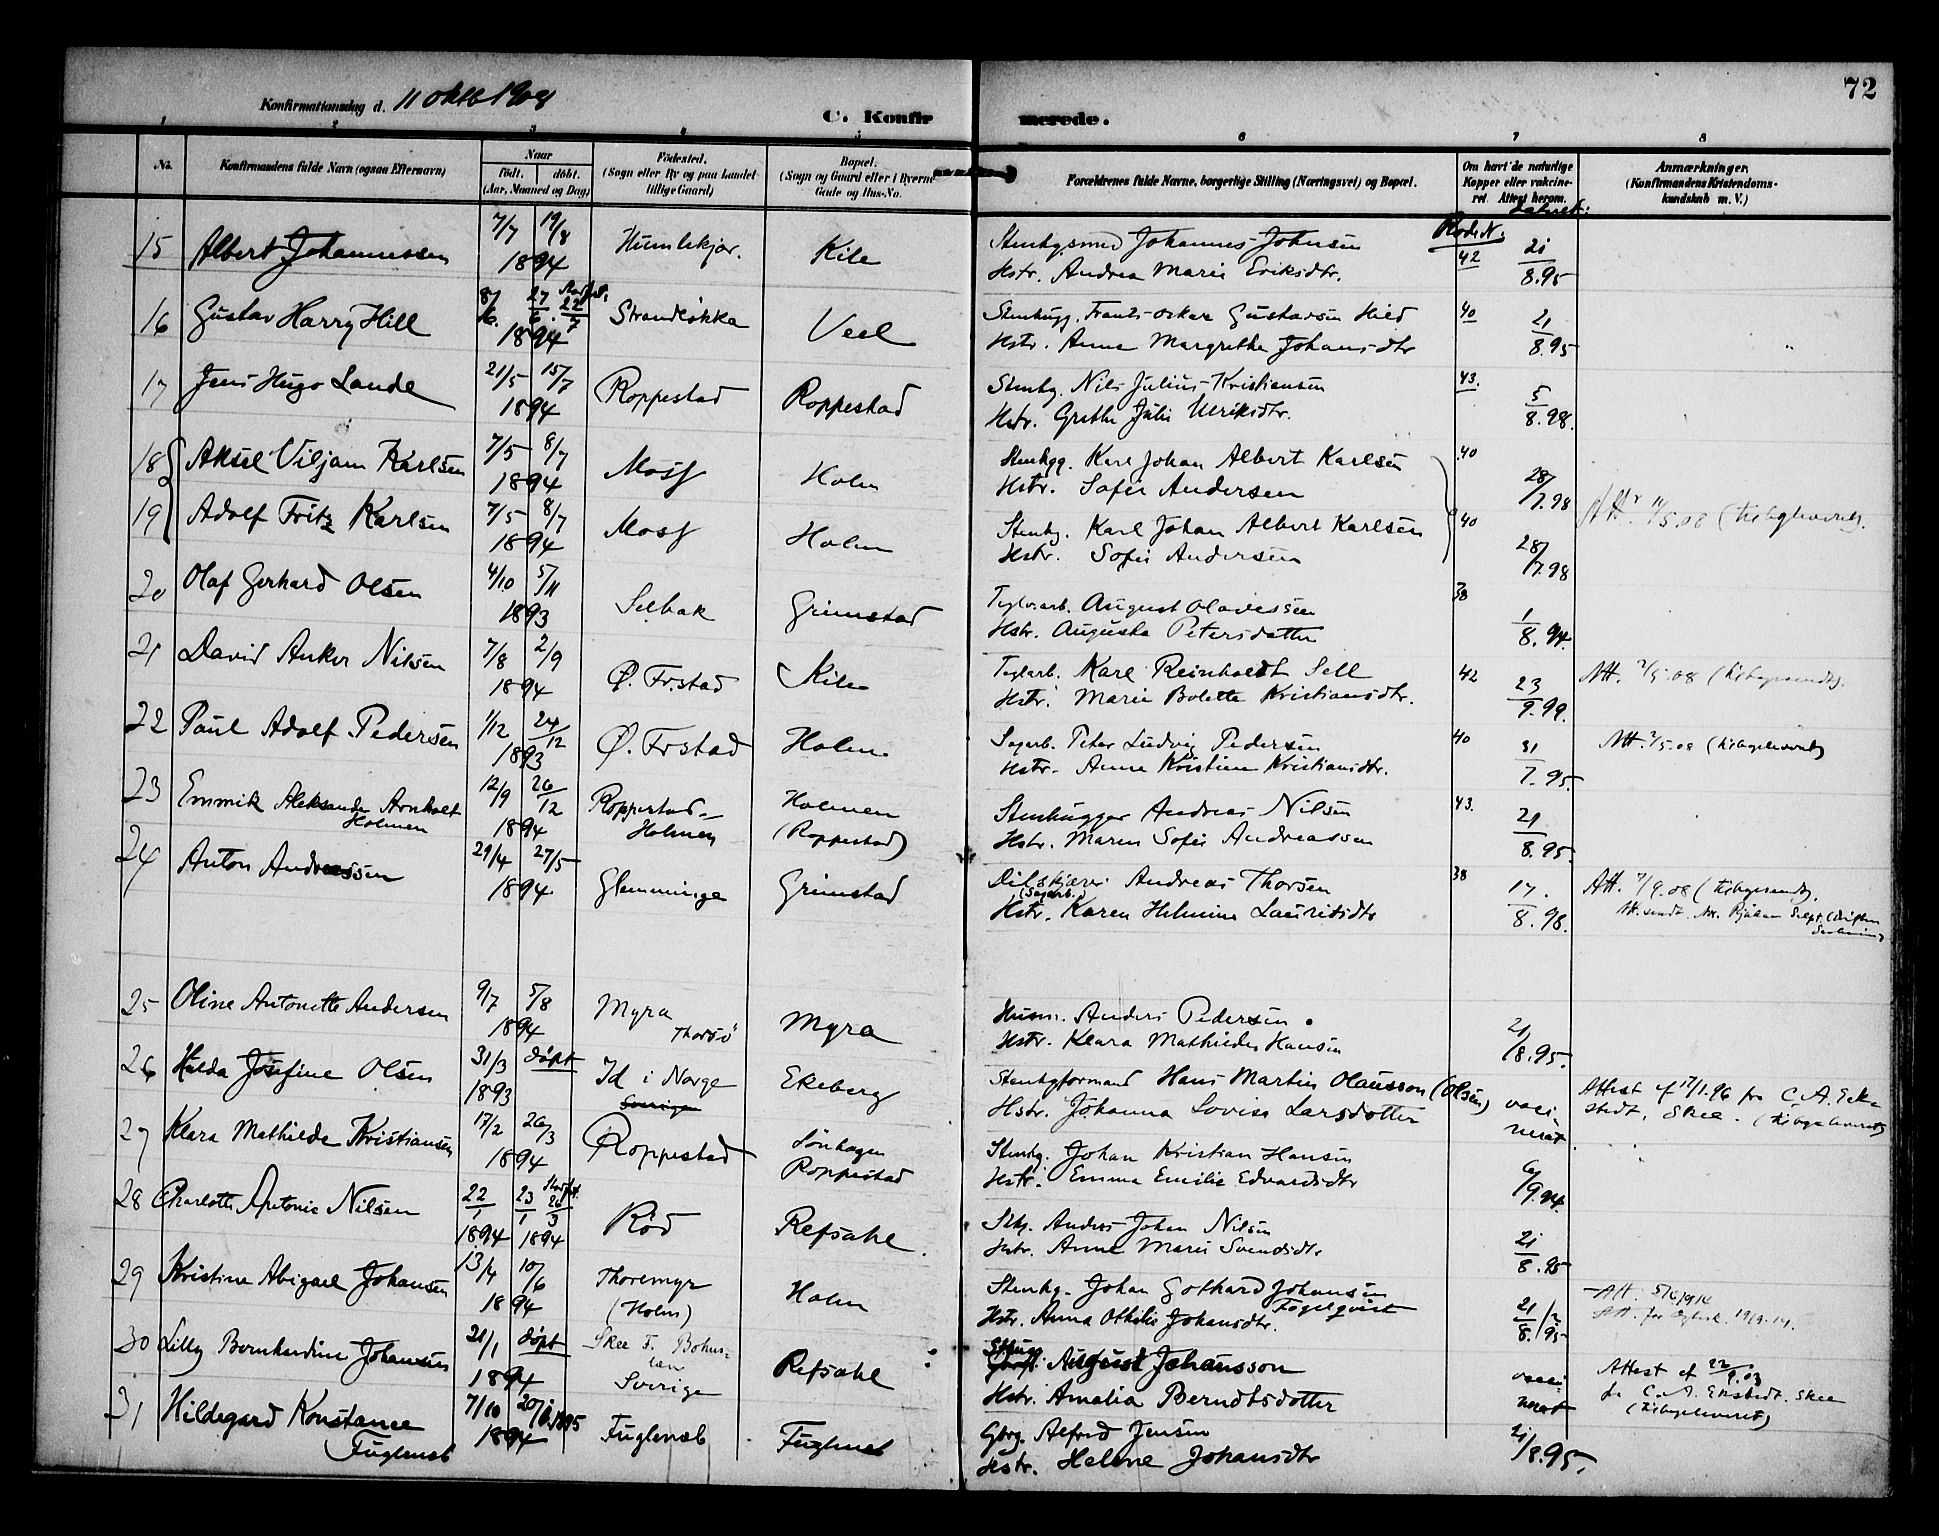 72
Konfirmationsdag d. 11 oktb 1908
C. Konfirmerede.
1 2 3 4 5 6 7 8
No.
Konfirmandens fulde Navn (ogsaa Efternavn)
Naar
født. døbt.
(Aar, Maaned og Dag)
Fødested.
(Sogn eller By og paa Landet
tillige Gaard)
Bopæl.
(Sogn og Gaard eller i Byerne
Gade og Hus-No.
Forældrenes fulde Navne, borgerlige Stilling (Næringsvei) og Bopæl.
Om havt de naturlige
Kopper eller vakcine-
ret. Attest herom.
Anmærkninger.
(Konfirmandens Kristendoms-
kundskab m. V.)
Rode N.
15 Albert Johannessen 7/7 19/8 1894 Humlekjær. Kile
Stenhgsmd Johannes Johnsen 42 21/8.95
Hstr. Andrea Marie Eriksdtr.
16 Gustav Harry Hill 8/6. 27/6. 22/7 1894 Strandløkka Veel
Stenhugg. Frants Oskar Gustavsen Hild 40 21/8.95
Hstr. Anna Margrethe Johansdtr
17 Jens Hugo Lande 21/5 15/7 1894 Roppestad Roppestad
Stenhg. Nils Julius Kristiansen 43. 5/8.98.
Hstr. Grethe Julie Ulriksdtr.
18 Aksel Viljam Karlsen 7/5 8/7 1894 Moss Holm
Stenhgg. Karl Johan Albert Karlsen 40 28/7.98
Hstr. Sofie Andersen
19 Adolf Fritz Karlsen 7/5 8/7 1894 Moss Holm
Stenhg. Karl Johan Albert Karlsen 40 28/7.98
Hstr. Sofie Andersen
20 Olaf Gerhard Olsen 4/10 5/11 1893 Selbak Grimstad
Teglvarb. August Olavessen 38 1/8.94.
Hstr. Augusta Petersdatter
21 David Anker Nilsen 7/8 2/9 1894 Ø. Frstad Kile
Teglarb. Karl Reinholdt Sell 42 23/9.99.
Hstr. Marie Bolette Kristiansdtr.
22 Paul Adolf Pedersen 1/12 24/12 1893 Ø. Frstad Holm
Sagarb. Peter Ludvig Pedersen 40 31/7.95.
Hstr. Anne Kristine Kristiansdtr.
23 Emmik Aleksander Arnholt Holmen 12/9 26/12 1894 Roppestad- Holmen Holmen (Roppestad)
Stenhugger Andreas Nilsen 43. 21/8.95.
Hstr. Maren Sofie Andreassen
24 Anton Andreassen 29/4 27/5 1894. Glemminge Grimstad
Andreas Thorsen 38 17/8.98.
(Sagarb.)
Hstr. Karen Helmine Lauritsdtr
25 Oline Antonette Andersen 9/7 5/8 1894 Myra Thorsö Myra
Husm. Anders Pedersen. 21/8.95.
Hstr. Klara Mathilde Hansen
26 Hulda Josefine Olsen 31/3 döpt 1893 Id i Norge Sverige Ekeberg
Stenhgformand Hans Martin Olausson (Olsen) vacci
Hstr. Johanna Lovisa Larsdotter nerat
Attest af 17/1.96 fra C. A. Ek
stedt, Skee. (tilbageleveret)
27 Klara Mathilde Kristiansen 17/2 26/3 1894 Roppestad Sönhagen Roppestad
Stenhg. Johan Kristian Hansen 6/9.94.
Hstr. Emma Emilie Edvardsdtr
28 Charlotte Antonie Nilsen 22/1 1894 23/1 26/3 1894 Röd Refsahl.
Sthg. Anders Johan Nilsen 21/8.95
Hstr. Anne Marie Svendsdtr
29 Kristine Abigael Johansen 13/4 10/6 1894 Thoremyr (Holm) Holm
Stenhg. Johan Gothard Johansen Fogelqvist 21/8.95
Hstr. Anna Othelie Johansdtr.
30 Lilly Bernhardine Johansen 21/1 döpt 1894 Skee F. Bohus-län Sverige Refsahl
August Johansson vacci
Hstr. Amalia Berndtsdotter nerat
Attest af 22/9.03
fra C. A. Ekstedt. Skee
(tilbageleveret)
31 Hildegard Konstance Fuglenseb 7/10 1894 20/1.1895 Fuglenseb Fuglenseb
Gbrg. Alfred Jensen 21/8.95.
Hstr. Helene Johansdtr